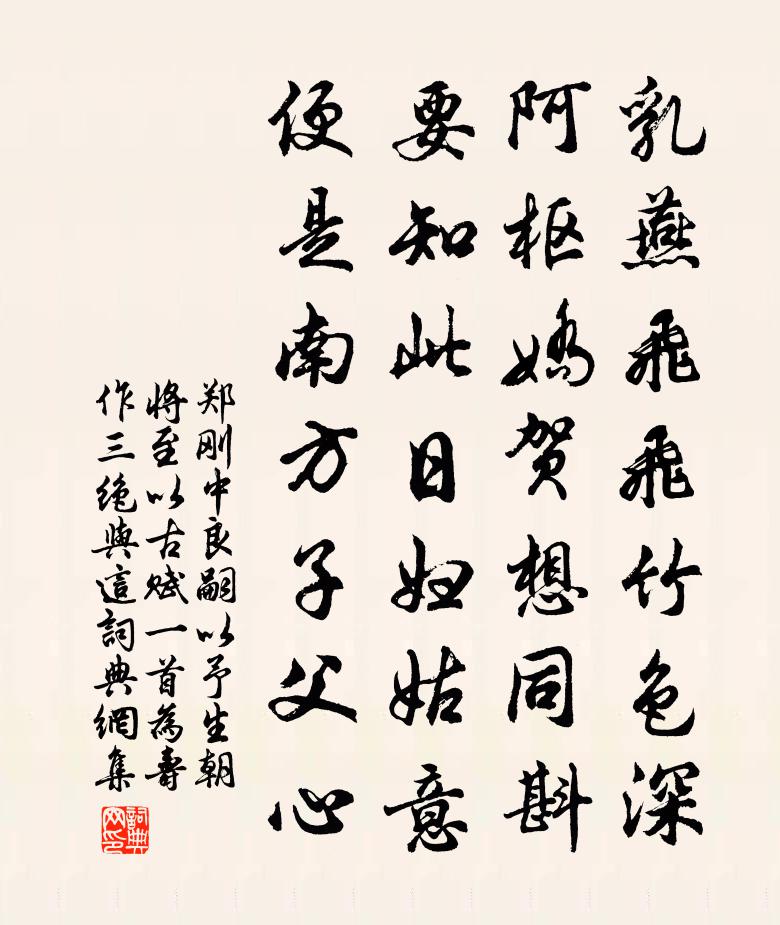 乳燕飛飛竹色深
阿枢嬌贺想同斟
要知此日妇姑意
便是南方子父心
郑刚中良嗣以予生朝
将至以古赋一首為壽
作三绝與這詞典網集
詞典
网印